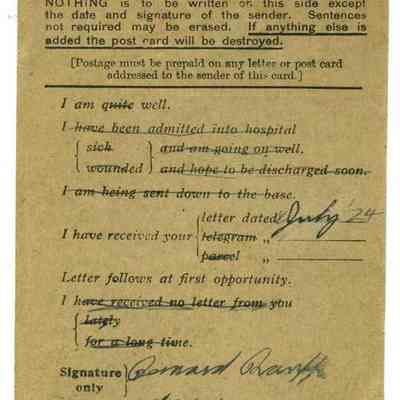 NOTHING is to be written on this side except
the date and signature of the sender. Sentences
not required may be erased. If anything else is
added the post card will be destroyed.
[Postage must be prepaid on any letter or post card
addressed to the sender of this card.]
I am quite well.
I have been admitted into hospital
sick and am going on well.
wounded and hope to be discharged soon.
I am being sent down to the base.
letter dated July 24
I have received your telegram „
parcel „
Letter follows at first opportunity.
I have received no letter from you
lately
for a long time.
Signature
only